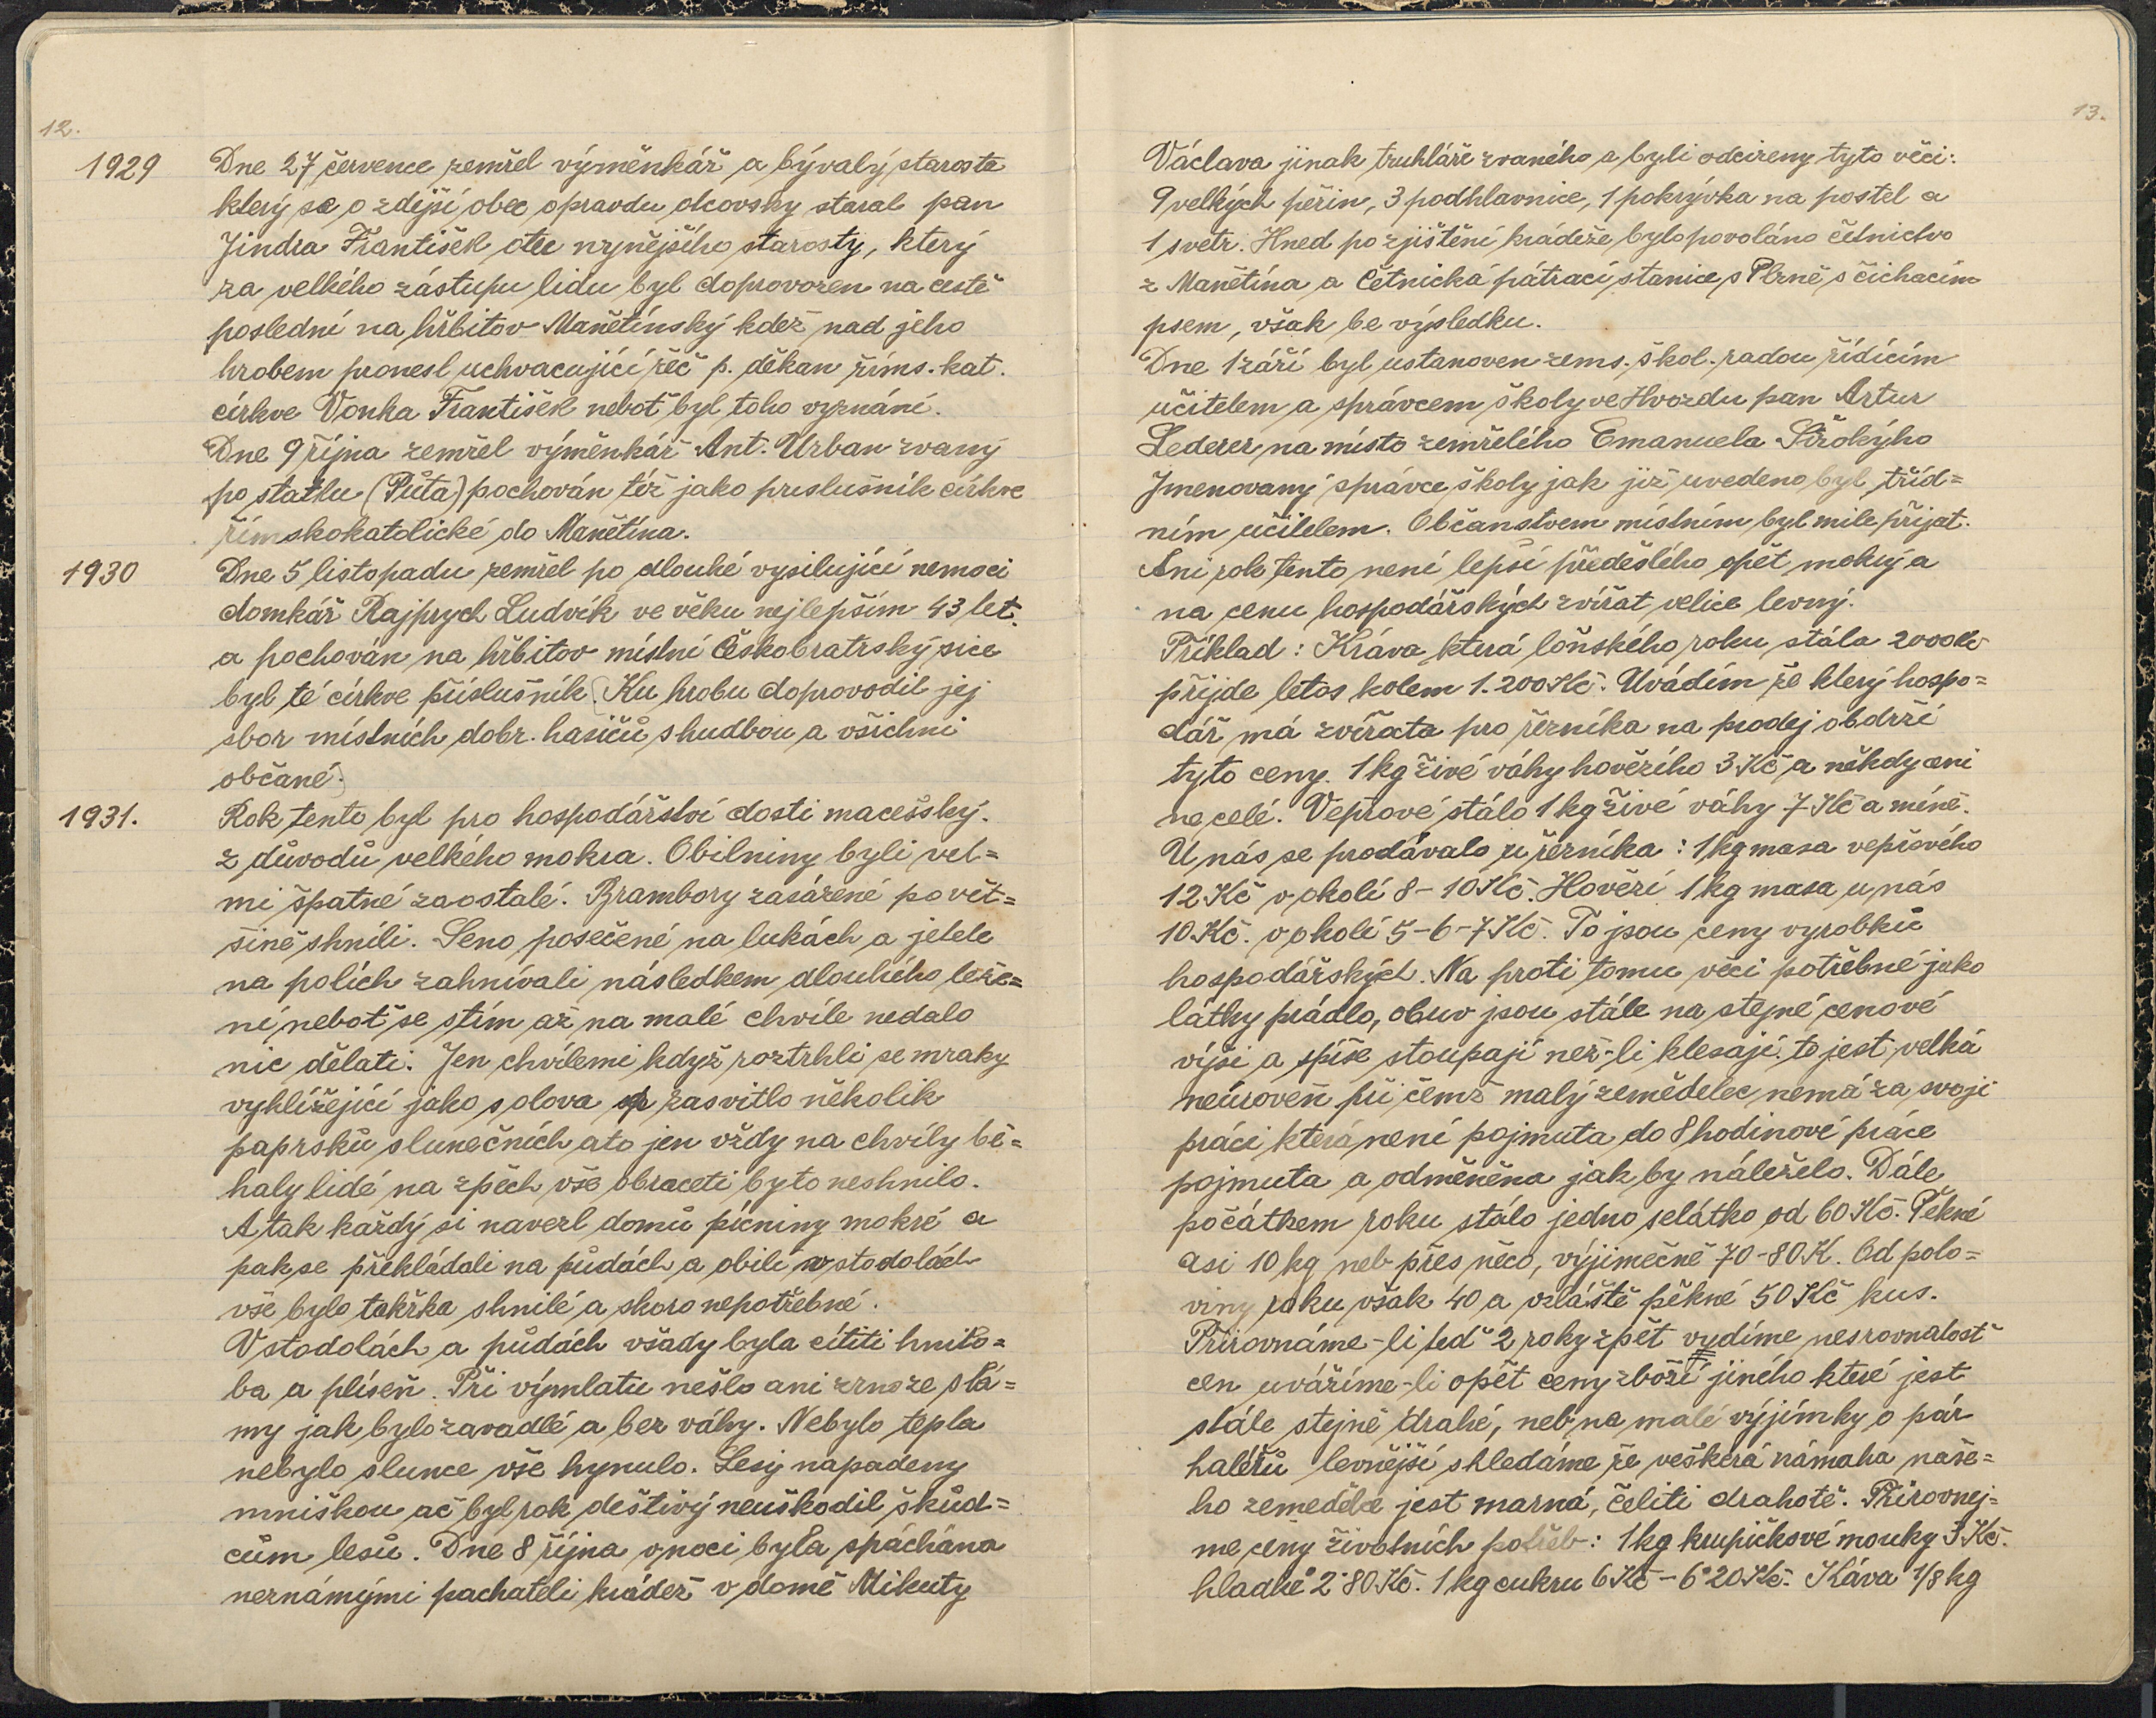 12.
1929 Dne 27 července zemřel výměnkář a bývalý starosta
který se o zdější obec opravdu otcovsky staral pan
Jindra František otec nynějšího starosty, který
za velkého zástupu lidu byl doprovozen na cestě
poslední na hřbitov Manětínský kdež nad jeho
hrobem pronesl uchvacující řěč p. děkan říms. kat.
církve Vonka František neboť byl toho vyznání.
Dne 9 října zemřel výměnkář Ant. Urban zvaný
po statku (Půta) pochován též jako prislušník církve
římskokatolické do Manětína.
1930 Dne 5 listopadu zemřel po dlouhé vysilující nemoci
domkář Rajprych Ludvík ve věku nejlepším 43 let.
a pochován na hřbitov místní Českobratrský sice
byl té církve příslušník. (Ku hrobu doprovodil jej
sbor místních dobr. hasičů s hudbou a všichni
občané.)
1931. Rok tento byl pro hospodářství dosti macešský.
z důvodů velkého mokra. Obilniny byli vel=
mi špatné zaostalé. Brambory zasázené po vět=
šině shnili. Seno posečené na lukách a jetele
na polích zahnívali následkem dlouhého leže=
ní neboť se stím až na malé chvíle nedalo
nic dělati. Jen chvílemi když roztrhli se mraky
vyhlížející jako s olova zasvitlo několik
paprsků slunečních ato jen vždy na chvíly bě=
haly lidé na zpěch vše obraceti by to neshnilo.
A tak každý si navezl domů pícniny mokré a
pak se překládali na půdách a obilí v stodolách
vše bylo takřka shnilé a skoro nepotřebné.
V stodolách a půdách všady byla cítiti hnilo=
ba a plíseň. Při výmlatu nešlo ani zrno ze slá=
my jak bylo zavadlé a bez váhy. Nebylo tepla
nebylo slunce vše hynulo. Lesy napadeny
mniškou ač byl rok deštivý neuškodil škůd=
cům lesů. Dne 8 října v noci byla spáchána
neznámými pachateli krádež v domě Mikuty
13.
Václava jinak truhláře zvaného a byli odcizeny tyto věci:
9 velkých peřin, 3 podhlavnice, 1 pokrývka na postel a
1 svetr. Hned po zjištění krádeže bylo povoláno četnictvo
z Manětína a Četnická pátrací stanice s Plzně s čichacím
psem, však be výsledku.
Dne 1 září byl ustanoven zems. škol. radou řídícím
učitelem a správcem školy ve Hvozdu pan Artur
Lederer na místo zemřelého Emanuela Širokýho
Jmenovaný správce školy jak již uvedeno byl tříd=
ním učitelem. Občanstvem místním byl mile přijat.
Ani rok tento není lepší předešlého opět mokrý a
na cenu hospodářských zvířat velice levný.
Příklad: Kráva která loňského roku stála 2000 Kč
přijde letos kolem 1.200 Kč. Uvádím že který hospo=
dář má zvířata pro řezníka na prodej obdrží
tyto ceny. 1 kg živé váhy hovězího 3 Kč a někdy ani
ne celé. Vepřové stálo 1 kg živé váhy 7 Kč a méně.
U nás se prodávalo u řezníka: 1 kg masa vepřového
12 Kč v okolí 8-10 Kč. Hovězí 1 kg masa u nás
10 Kč. v okolí 5-6-7 Kč. To jsou ceny vyrobků
hospodářských. Na proti tomu věci potřebné jako
látky prádlo, obuv jsou stále na stejné cenové
výši a spíše stoupají než-li klesají. to jest velká
neúroveň při čemž malý zemědelec nemá za svoji
práci která není pojmuta do 8 hodinové práce
pojmuta a odměněna jak by náleželo. Dále
počátkem roku stálo jedno selátko od 60 Kč. Pěkné
asi 10 kg neb přes něco, výjimečně 70-80 K. Od polo=
viny roku však 40 a vzláště pěkné 50 Kč kus.
Přirovnáme-li teď 2 roky zpět vydíme nesrovnalosť
cen uvážíme-li opět ceny zboží jiného které jest
stále stejně drahé, neb na malé výjímky o pár
haléřů levnější shledáme že veškerá námaha naše=
ho zemedělce jest marná, čeliti drahotě. Přirovnej=
me ceny životních potřeb: 1 kg krupičkové mouky 3 Kč.
hladké 2·80 Kč. 1 kg cukru 6 Kč - 6·20 Kč. Káva 1/8 kg